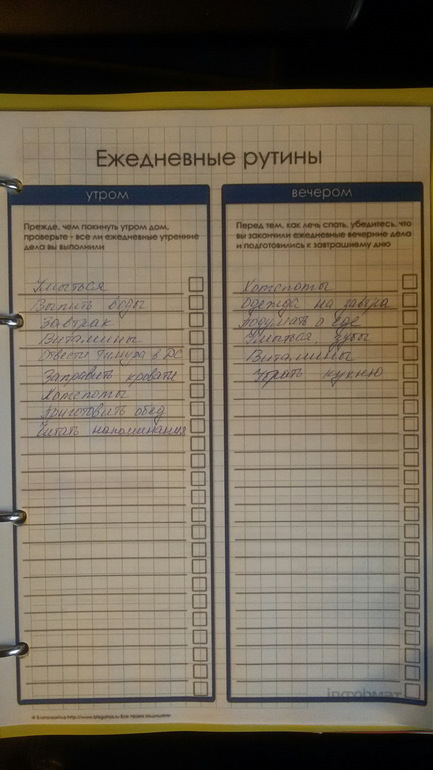 Ежедневные рутины
утром
Прежде, чем покинуть утром дом,
проверьте - все ли ежедневные утренние
дела вы выполнили
Умыться
Выпить воды
Завтрак
Витамины
Отвести Тимура в ДС
Заправить кровати
Хотспоты
Приготовить обед
Читать напоминания
вечером
Перед тем, как лечь спать, убедитесь, что
вы закончили ежедневные вечерние дела
и подготовились к завтрашнему дню
Хотспоты
Одежда на завтра
Подумать о еде
Умыться, зубы
Витамины
Убрать кухню
информат
http://www.blogohat.ru Все права защищены